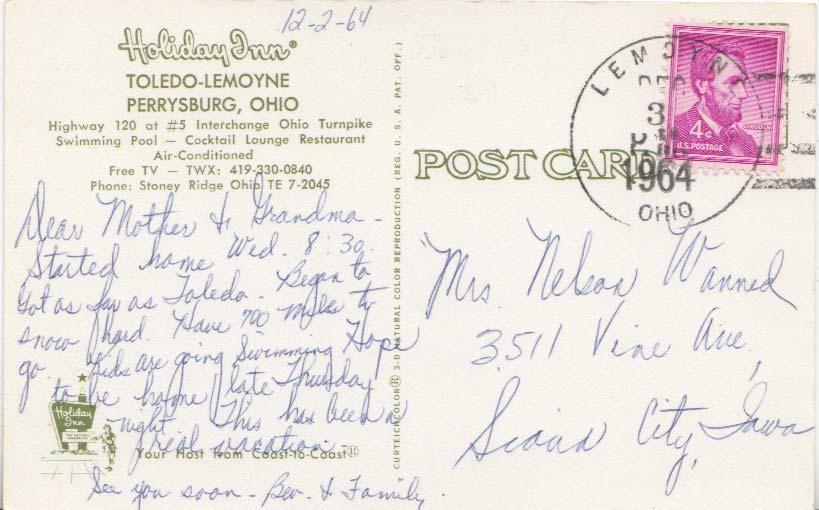 12-2-64
Holiday Inn®
TOLEDO-LEMOYNE
PERRYSBURG, OHIO
Highway 120 at #5 Interchange Ohio Turnpike
Swimming Pool — Cocktail Lounge Restaurant
Air-Conditioned
Free TV — TWX: 419-330-0840
Phone: Stoney Ridge Ohio TE 7-2045
Dear Mother & Grandma -
Started home Wed. 8:30.
Got as far as Toledo. Began to
snow hard. Have 700 miles to
go. Kids are going swimming. Hope
to be home late Thursday
night. This has been a
real vacation -
See you soon - Bev. & Family.
Holiday Inn
Your Host from Coast-to-Coast®
CURTEICHCOLOR® 3-D NATURAL COLOR REPRODUCTION (REG. U. S. A. PAT. OFF.)
POST CARD
LEMOYNE
DEC
3
P.M.
1964
OHIO
4¢
LINCOLN
U.S. POSTAGE
Mrs. Nelson Wanned
3511 Vine Ave,
Sioux City, Iowa